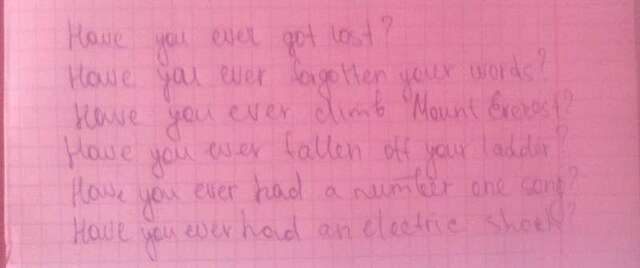 Have you ever got lost?
Have you ever forgotten your words?
Have you ever climb Mount Everest?
Have you ever fallen off your ladder?
Have you ever had a number one song?
Have you ever had an electric shock?